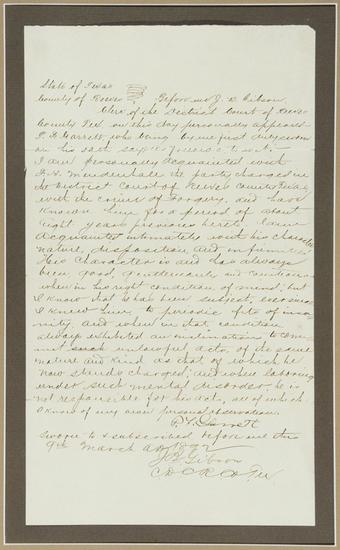 State of Texas
County of Reeves Before me J. B. Gibson
Clerk of the District Court of Reeves
County Tex on this day personally appeared
P. F. Garrett, who being by me first duly sworn
on his oath says
I am personally acquainted with
Mendenhall the party charged in
the District Court of Reeves County Texas
with the crime of Forgery, and have
known him for a period of about
Eight years previous hereto. I am
acquainted intimately with his character
nature, disposition, and infirmities
His character is and has always
been good, gentlemanly and
when in his right condition of mind, but
I know that he has been subject, ever since
I knew him, to periodic fits of insa-
nity, and when in that condition
always exhibited an inclination to com-
mit such unlawful acts, of the same
nature and kind as that of which he
now stands charged, and when laboring
under such mental disorder he is
not responsible for his act, all of which
I know of my own personal observation.
P. F. Garrett
Sworn to & subscribed before me this
9th March AD 1892
J B Gibson